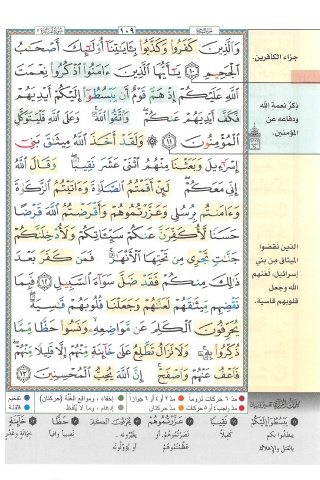 ١٠٩
وَالَّذِينَ كَفَرُوا وَكَذَّبُوا بِـَٔايَٰتِنَآ أُولَٰٓئِكَ أَصْحَٰبُ
الْجَحِيمِ ١٠ يَٰٓأَيُّهَا الَّذِينَ ءَامَنُوا اذْكُرُوا نِعْمَتَ
اللَّهِ عَلَيْكُمْ إِذْ هَمَّ قَوْمٌ أَن يَبْسُطُوٓا إِلَيْكُمْ أَيْدِيَهُمْ
فَكَفَّ أَيْدِيَهُمْ عَنكُمْ وَاتَّقُوا اللَّهَ وَعَلَى اللَّهِ فَلْيَتَوَكَّلِ
الْمُؤْمِنُونَ ١١ وَلَقَدْ أَخَذَ اللَّهُ مِيثَٰقَ بَنِىٓ
إِسْرَٰٓءِيلَ وَبَعَثْنَا مِنْهُمُ اثْنَىْ عَشَرَ نَقِيبًا وَقَالَ اللَّهُ
إِنِّى مَعَكُمْ لَئِنْ أَقَمْتُمُ الصَّلَوٰةَ وَءَاتَيْتُمُ الزَّكَوٰةَ
وَءَامَنتُم بِرُسُلِى وَعَزَّرْتُمُوهُمْ وَأَقْرَضْتُمُ اللَّهَ قَرْضًا
حَسَنًا لَّأُكَفِّرَنَّ عَنكُمْ سَيِّـَٔاتِكُمْ وَلَأُدْخِلَنَّكُمْ
جَنَّٰتٍ تَجْرِى مِن تَحْتِهَا الْأَنْهَٰرُ فَمَن كَفَرَ بَعْدَ
ذَٰلِكَ مِنكُمْ فَقَدْ ضَلَّ سَوَآءَ السَّبِيلِ ١٢ فَبِمَا
نَقْضِهِم مِّيثَٰقَهُمْ لَعَنَّٰهُمْ وَجَعَلْنَا قُلُوبَهُمْ قَٰسِيَةً
يُحَرِّفُونَ الْكَلِمَ عَن مَّوَاضِعِهِ وَنَسُوا حَظًّا مِّمَّا
ذُكِّرُوا بِهِ وَلَا تَزَالُ تَطَّلِعُ عَلَىٰ خَآئِنَةٍ مِّنْهُمْ إِلَّا قَلِيلًا مِّنْهُمْ
فَاعْفُ عَنْهُمْ وَاصْفَحْ إِنَّ اللَّهَ يُحِبُّ الْمُحْسِنِينَ ١٣
جزاء الكافرين.
ذكر نعمة الله
ودفاعه عن
المؤمنين.
الذين نقضوا
الميثاق من بني
إسرائيل، لعنهم
الله وجعل
قلوبهم قاسية.
مدّ ٦ حركات لزوماً مدّ ٢ أو ٤ أو ٦ جوازاً إخفاء، ومواقع الغنّة (حركتان) تفخيم
مدّ واجب ٤ أو ٥ حركات مدّ حركتان إدغام، وما لا يُلفظ قلقلة
يَبْسُطُوا إِلَيْكُمْ نَقِيبًا عَزَّرْتُمُوهُمْ يُحَرِّفُونَ الْكَلِمَ حَظًّا خَآئِنَةٍ
يبطشوا بكم كفيلاً نصرتموهم، أو يغيّرونه نصيباً وافياً خيانة وغدر
بالقتل والإهلاك عظّمتموهم أو يؤوّلونه